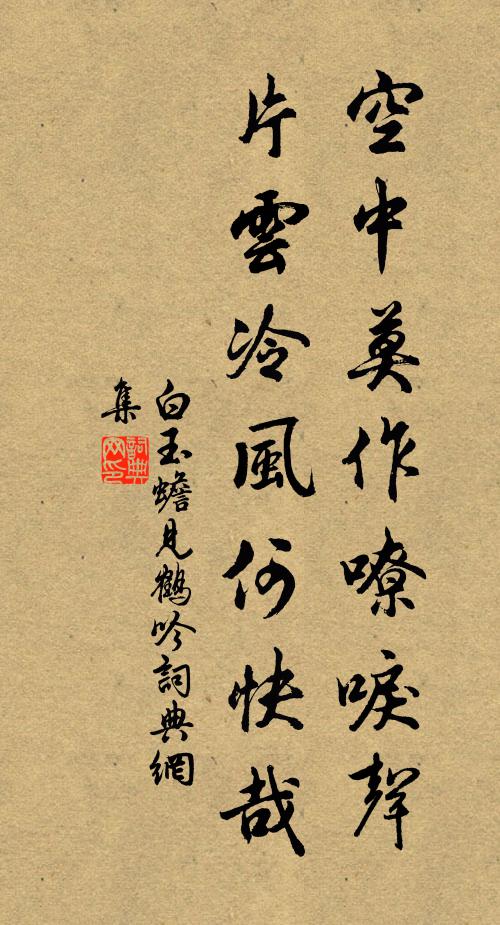 空中莫作嘹唳聲
片雲冷風何快哉
白玉蟾見鶴吟詞典網
集
詞典
网印